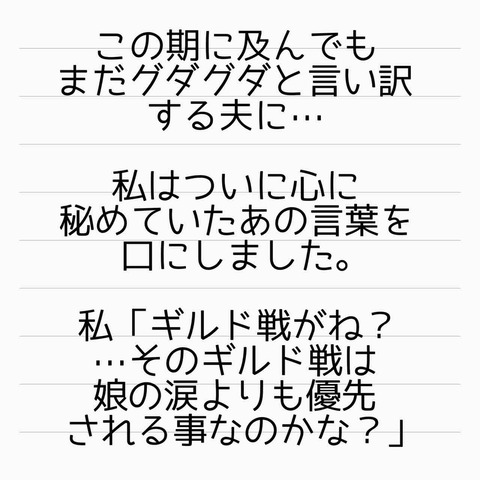 この期に及んでも
まだグダグダと言い訳
する夫に…
私はついに心に
秘めていたあの言葉を
口にしました。
私「ギルド戦がね？
…そのギルド戦は
娘の涙よりも優先
される事なのかな？」